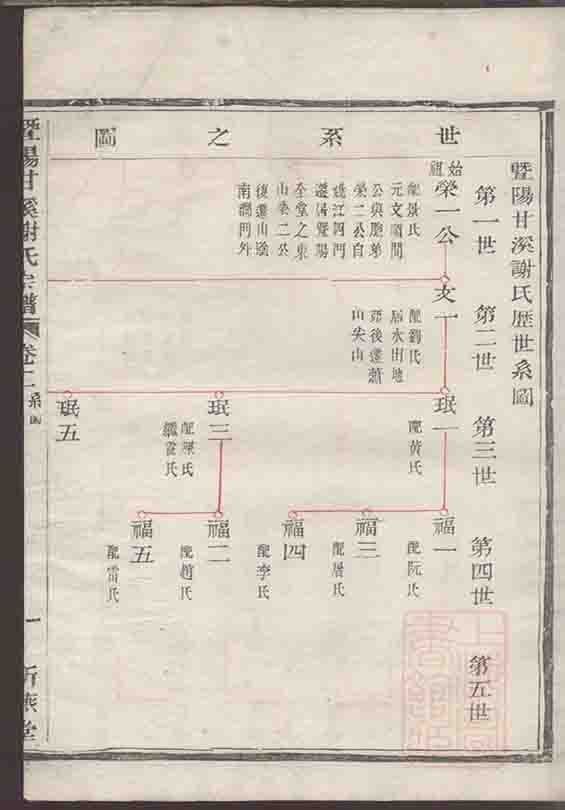 世系之圖
暨陽甘溪謝氏歷世系圖
第一世
始祖
榮一公
配景氏
元文宗間
公與胞弟
榮二公自
姚江四門
遷居暨陽
全堂之東
山榮二公
後遷山陰
南澗門外
第二世
文一
配劉氏
居水田地
邵後遷蕭
山尖山
第三世
珉一
配黃氏
珉三
配陳氏
繼雷氏
珉五
第四世
福一
配阮氏
福三
配屠氏
福四
配李氏
福二
配趙氏
福五
配雷氏
第五世
暨陽甘溪謝氏宗譜
卷二
系圖
一